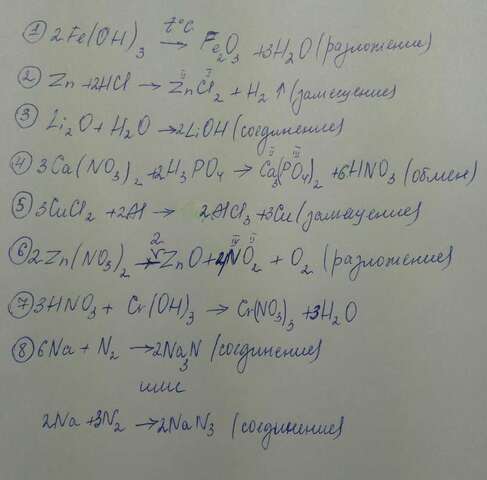 ① 2Fe(OH)₃ t°C → Fe₂O₃ + 3H₂O (разложение)
② Zn + 2HCl → ZnᴵᴵCl₂ᴵ + H₂ ↑ (замещение)
③ Li₂O + H₂O → 2LiOH (соединение)
④ 3Ca(NO₃)₂ + 2H₃PO₄ → Ca₃ᴵᴵ(PO₄)₂ᴵᴵᴵ + 6HNO₃ (обмен)
⑤ 3CuCl₂ + 2Al → 2AlCl₃ + 3Cu (замещение)
⑥ 2Zn(NO₃)₂ → 2ZnO + 4NᴵⱽO₂ᴵᴵ + O₂ (разложение)
⑦ 3HNO₃ + Cr(OH)₃ → Cr(NO₃)₃ + 3H₂O
⑧ 6Na + N₂ → 2Na₃N (соединение)
или
2Na + 3N₂ → 2NaN₃ (соединение)